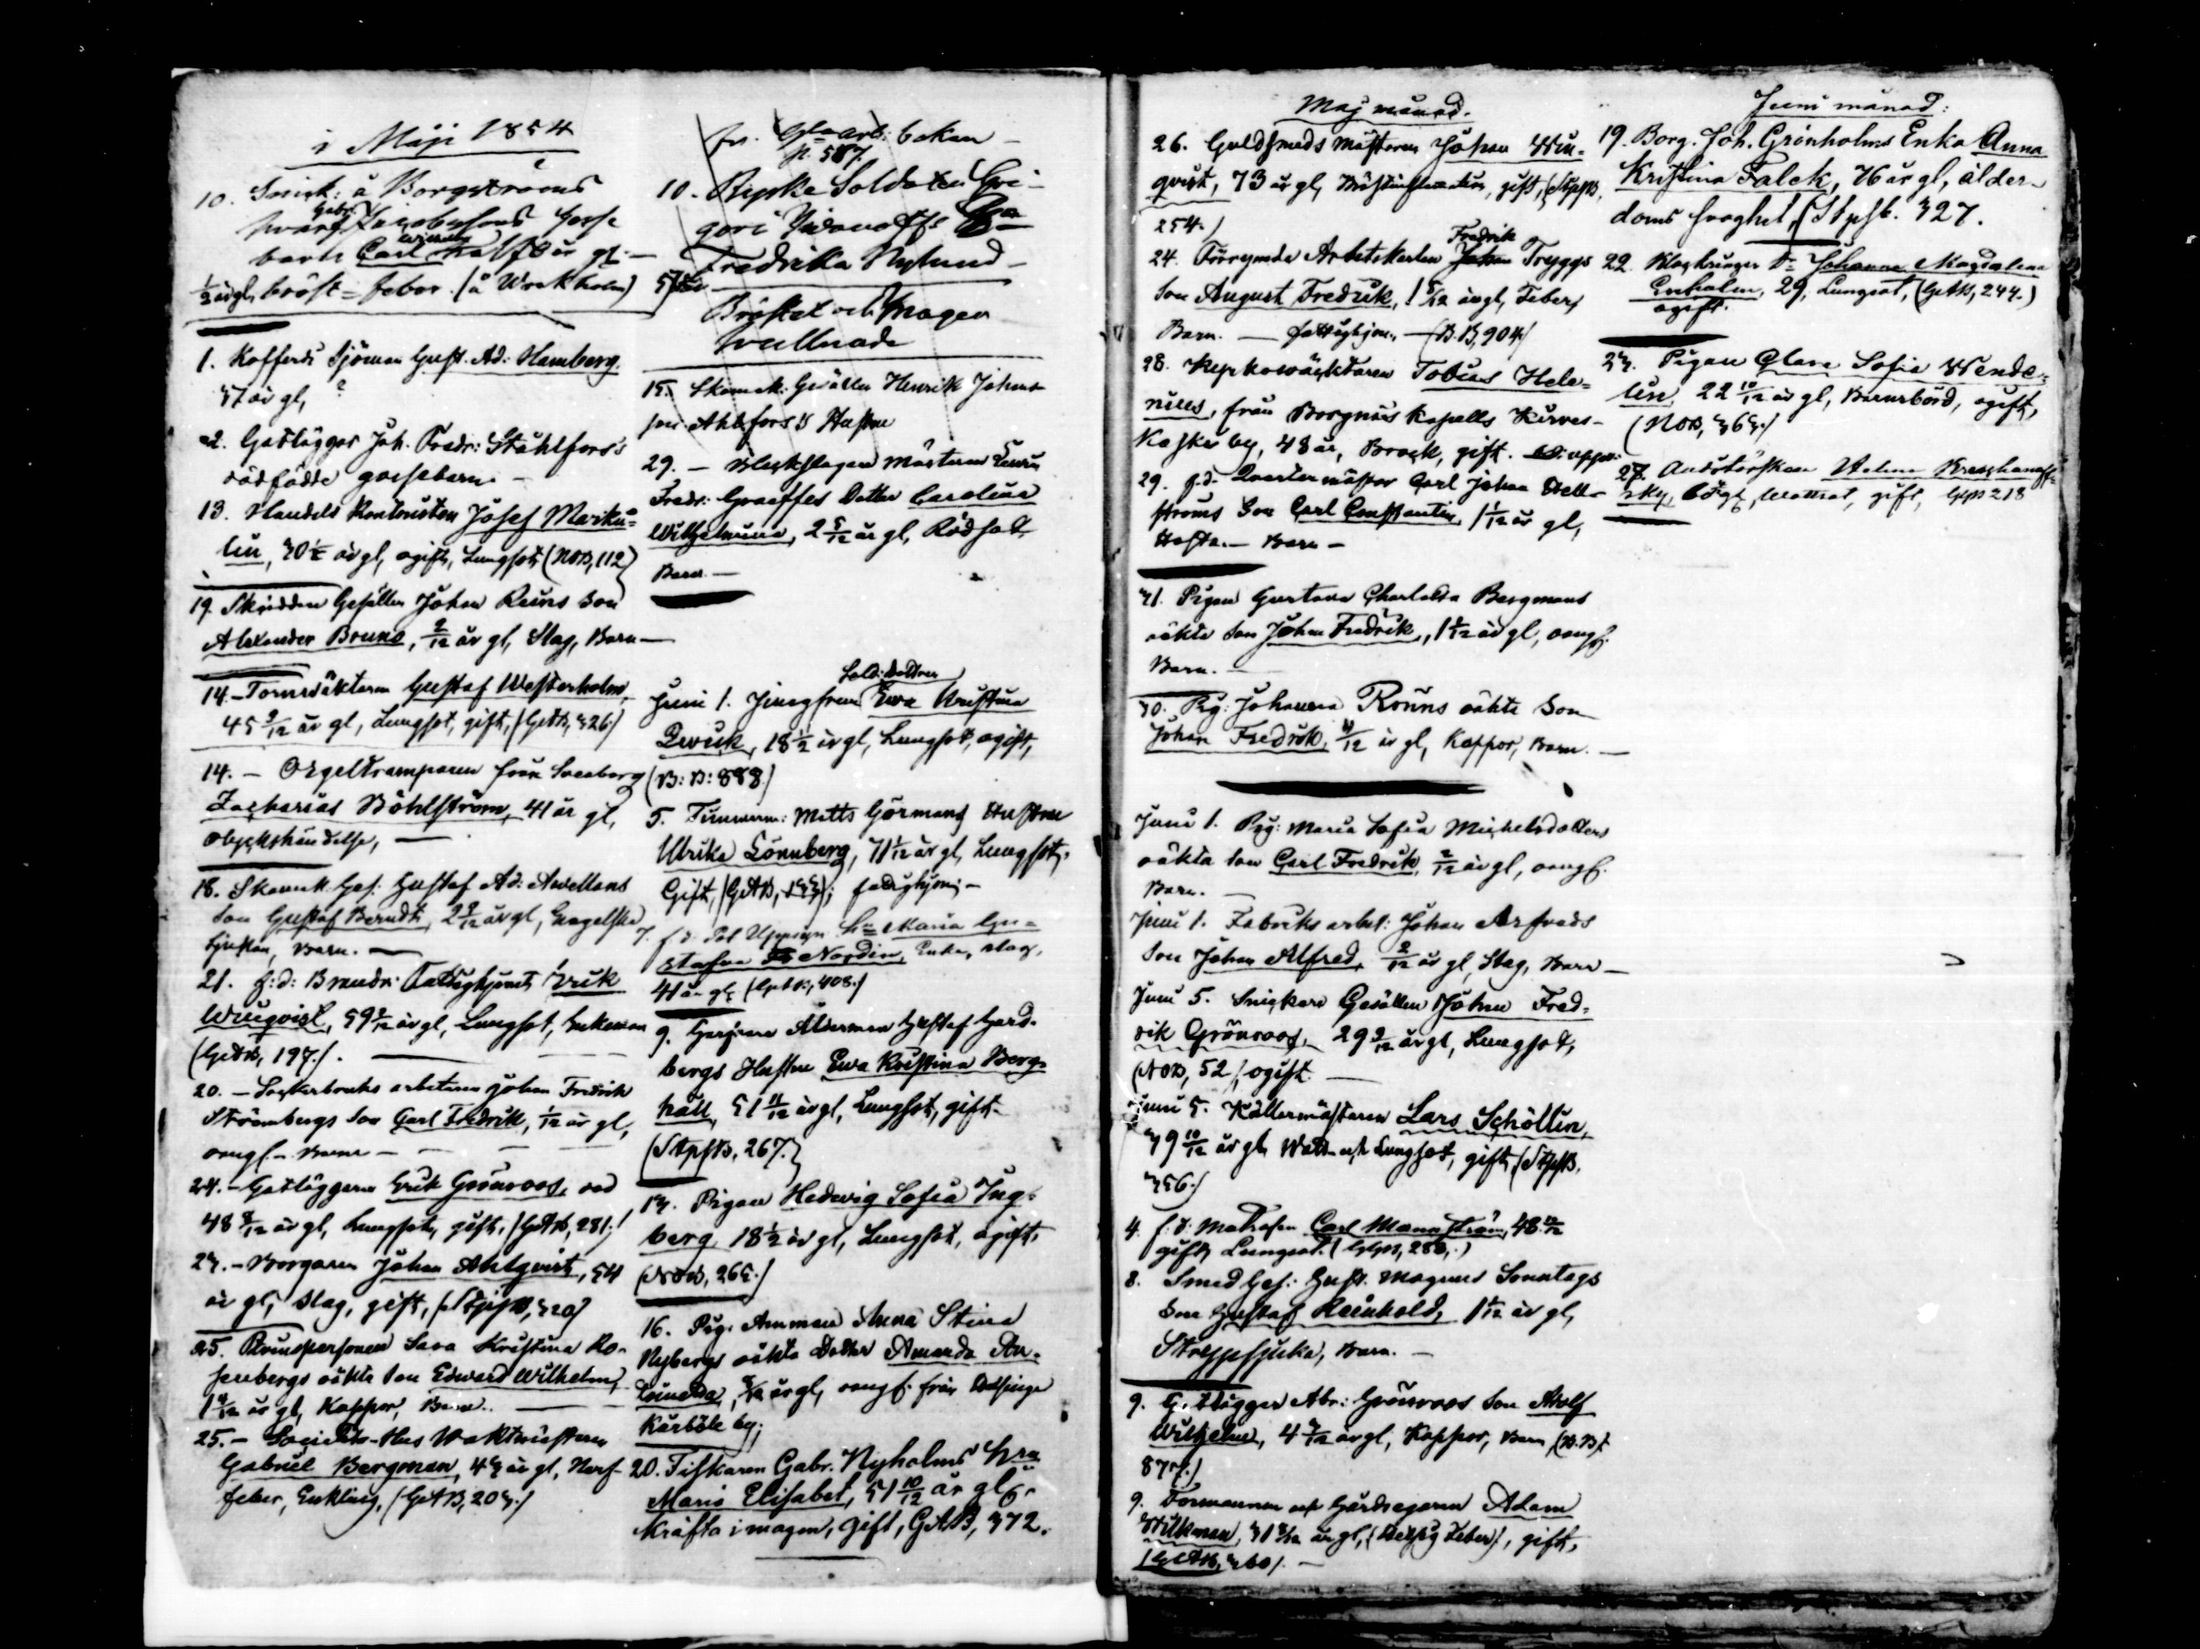 i Maji 1854
10. Snick: å Borgströms
Gabr.
Jacobssons gosse
barn Carl halft år gl. —
½ årgl, bröst-feber. (å Wrekholm)
1. Kofferdi Sjöman Gust. Ad: Hamberg.
57 år gl, ?
2. Gatlägger Joh. Fredr: Ståhlfors's
dödfödde gossebarn. —
13. Handels Kontoristen Josef Marku-
lin, 30 ½ år gl, ogift, Lungsot, (NOB, 112)
19. Skrädden Gesällen Johan Reins Son
Alexander Bruno, 2/12 år gl, Slag, Barn —
14. — Tornväktaren Gustaf Westerholm,
45 9/12 år gl, Lungsot, gift, (GAB, 326)
14. — Orgeltramparen från Sveaborg
Zacharias Böhlström, 41 år gl,
olyckshändelse, —
18. Skomak. Ges: Gustaf Ad: Avellans
Son Gustaf Berndt, 2 9/12 år gl, Engelska
sjukan, Barn. —
21. f:d: Brandv. Fattighjont, Erik
Winqvist, 59 2/12 år gl, Lungsot, Enkeman
(GAB, 197.)
20. — Sockerbruks arbetaren Johan Fredrik
Strömbergs Son Carl Fredrik, 1/12 år gl,
oangf. — Barn —
24. — Gatläggaren Erik Grönroos,
48 8/12 år gl, Lungsot, gift, (GAB, 281.)
23. — Borgaren Johan Ahlqvist, 54
år gl, slag, gift, (StpsB, 320)
25. Qvinspersonen Sara Kristina Ro-
senbergs oäkta Son Edward Wilhelm,
1 4/12 år gl, Koppor, Barn. —
25. — Societets-Hus Waktmästaren
Gabriel Bergman, 43 år gl, Nerf-
feber, Enkling, (GAB, 203.)
fr. Gla arb: boken —
p. 587.
10. Ryska Soldaten Gri-
gori Ivanoffs Hu
Fredrika Nylund —
57 år
Bröstet och magen
svullnade
15. Skomak. Gesällen Henrik Johans-
son Ahlfors's Hustru
29. — Bleckslagare Mästaren
Fredr: Graeffes Dotter Carolina
Wilhelmina, 2 5/12 år gl, Rödsot
Barn. —
Sold: dottren
Juni 1. Jungfrun Ewa Kristina
Qwick, 18 ½ år gl, Lungsot, ogift,
(B: B: 888.)
5. Timmerm: Matts Görmans Hustru
Ulrika Lönnberg, 71 1/12 år gl, Lungsot,
Gift, (GAB, 153); fattighjon; —
7. f d. Pol Uppsyn. Hu Maria Gu-
stafva Nordin, Enka, slag,
41 år gl, (GAB, 408.)
9. Garfvare Ålderman Gustaf Hard-
bergs Hustru Ewa Kristina Berg-
häll, 51 11/12 år gl, Lungsot, gift.
(StpsB, 267.)
13. Pigan Hedvig Sofia Ing-
berg, 18 ½ år gl, Lungsot, ogift,
(NOB, 265.)
16. Pig. Amman Anna Stina
Nybergs oäkta Dotter Amanda
år gl, oangf. från Helsinge
Kårböle by;
20. Fiskaren Gabr. Nyholms Hru
Maria Elisabet, 51 10/12 år gl,
Kräfta i magen, Gift, GAB, 372.
Maj månad.
26. Guldsmeds Mästaren Johan Win-
qvist, 73 år gl, Bröstinflamation, gift, (StpsB,
254.)
Fredrik
24. Förrymda Arbetskarlen Johan Tryggs
Son August Fredrik, 1 5/12 år gl, Feber,
Barn. — fattighjon, — (B.B, 904)
28. Kyrkowäktaren Tobias Hele-
nius, från Borgnäs Kapells Kirves-
koski by, 48 år, Brock, gift.
29. f.d. Quartermäster Carl Johan Hell-
ströms Son Carl Constantin, 1 1/12 år gl,
Hosta. — Barn —
31. Pigan Gustava Charlotta Bergmans
oäkta Son Johan Fredrik, 1 5/12 år gl, oangf.
Barn. —
30. Pig: Johanna Röuns oäkta Son
Johan Fredrik, 4/12 år gl, Koppor, Barn. —
Juni 1. Pig: Maria Sofia Michelsdotters
oäkta Son Carl Fredrik, 2/12 år gl, oangf.
Barn. —
Juni 1. Fabriks arbet: Johan Arfveds
Son Johan Alfred, 2/12 år gl, Slag, Barn —
Juni 5. Snickare Gesällen Johan Fred-
rik Grönroos, 29 9/12 år gl, Lungsot,
(NOB, 52,) ogift. —
Juni 5. Källermästaren Lars Schöllin,
39 10/12 år gl, Watt- och Lungsot, gift, (StpsB,
356.)
4. f. d. Matrosen Carl Mannström, 48
gift, Lungsot. (GAB, 280,)
8. Smed Ges: Gust. Magnus Sonntags
Son Gustaf Reinhold, 1 1/12 år gl,
Strypsjuka, Barn. —
9. Gatlägger Abr: Grönroos Son Adolf
Wilhelm, 4 3/12 år gl, Koppor, Barn, (B.B.
87
9. Formannen och Gårdsegaren Adam
Wilkman, 31 8/12 år gl, (Hetsig Feber), gift,
(GAB, 360). —
Juni månad:
19. Borg. Joh. Grönholms Enka Anna
Kristina Falck, 76 år gl, ålder-
doms svaghet, (Stpsb. 327.
22. Klockringar D:r Johanna Magdalena
Enholm, 29, Lungsot, (GAB, 244.)
ogift.
23. Pigan Clara Sofia Wende-
lin, 22 10/12 år gl, Barnsbörd, ogift,
(NOB, 363.)
27. Helena
sky, Wattsot, gift, 218